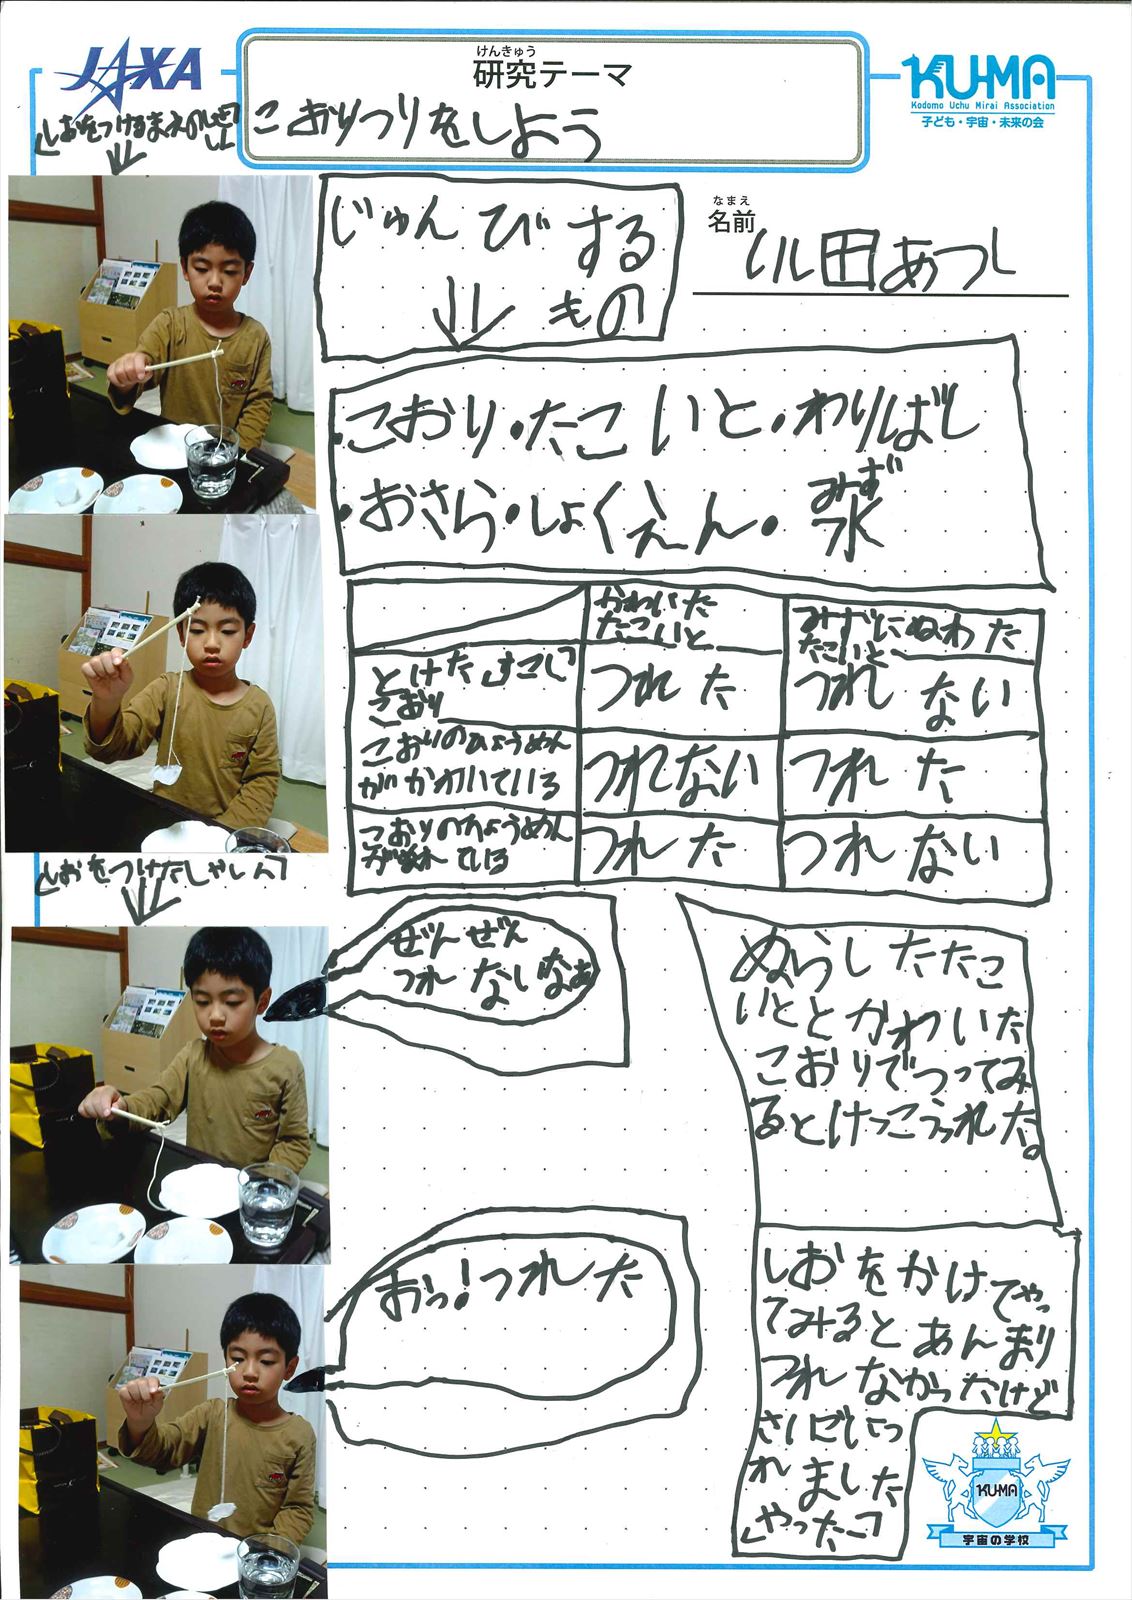 JAXA
けんきゅう
研究テーマ
こおりつりをしよう
KU-MA
Kodomo Uchu Mirai Association
子ども・宇宙・未来の会
なまえ
名前
小田あつし
じゅんびする
もの
・こおり・たこいと・わりばし
・おさら・しょくえん・水
みず
かわいた
たこいと
みずにぬわた
たこいと
とけたすこし
こおり
つれた
つれない
こおりのひょうめん
がかわいている
つれない
つれた
こおりのひょうめん
ている
つれた
つれない
「しおをつけたしゃしん」
ぜんぜん
つれないなぁ
おっ!つれた
ぬらしたたこ
いととかわいた
こおりでつってみ
るとけっこうつれた。
しおをかけてやっ
てみるとあんまり
つれなかったけど
さいごいっ
れました
「やったー」
KU-MA
宇宙の学校